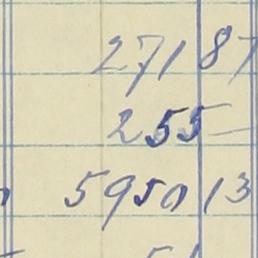 271 87
255 —
5950 13